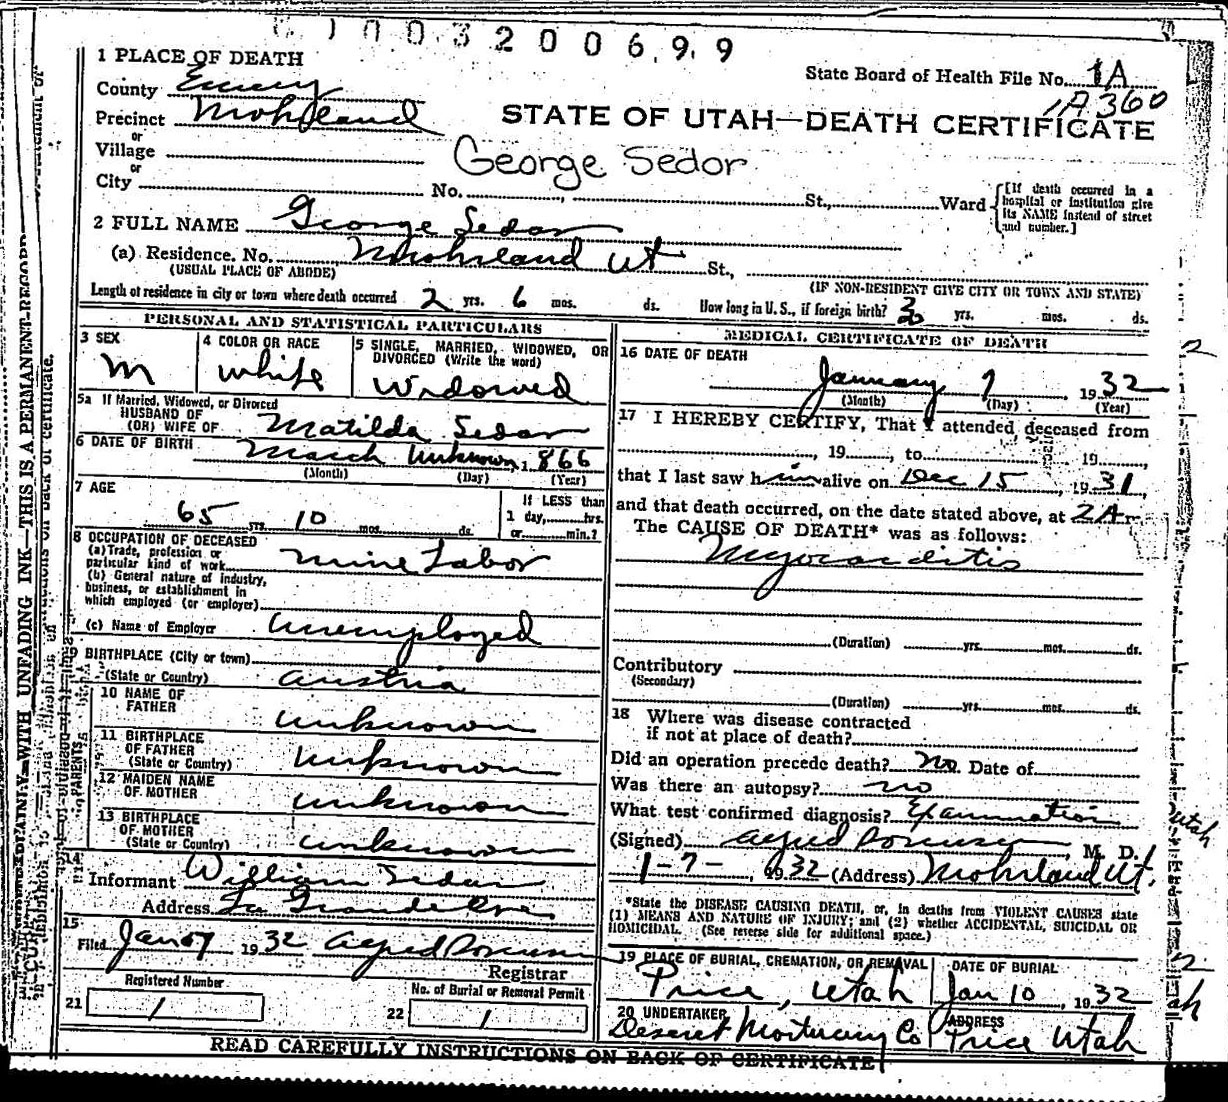 1003200699
1 PLACE OF DEATH
State Board of Health File No. 1A
1A360
County Emery
Precinct Mohrland
STATE OF UTAH—DEATH CERTIFICATE
or
Village
George Sedor
or
City No. St., Ward
[If death occurred in a hospital or institution give its NAME instead of street and number.]
2 FULL NAME George Sedor
(a) Residence. No. Mohrland Ut St.,
(USUAL PLACE OF ABODE) (IF NON-RESIDENT GIVE CITY OR TOWN AND STATE)
Length of residence in city or town where death occurred 2 yrs. 6 mos. ds. How long in U.S., if foreign birth? yrs. mos. ds.
PERSONAL AND STATISTICAL PARTICULARS
3 SEX
M
4 COLOR OR RACE
White
5 SINGLE, MARRIED, WIDOWED, OR
DIVORCED (Write the word)
Widowed
5a If Married, Widowed, or Divorced
HUSBAND OF
(OR) WIFE OF Matilda Sedor
6 DATE OF BIRTH March Unknown 1866
(Month) (Day) (Year)
7 AGE
65 yrs. 10 mos. ds.
If LESS than
1 day, hrs.
or min.?
8 OCCUPATION OF DECEASED
(a) Trade, profession or
particular kind of work Mine Labor
(b) General nature of industry,
business, or establishment in
which employed (or employer)
(c) Name of Employer Unemployed
9 BIRTHPLACE (City or town)
(State or Country) Austria
PARENTS
10 NAME OF
FATHER unknown
11 BIRTHPLACE
OF FATHER
(State or Country) Unknown
12 MAIDEN NAME
OF MOTHER unknown
13 BIRTHPLACE
OF MOTHER
(State or Country) unknown
14
Informant William Sedor
Address La Grande Ore.
15
Filed Jan 7 1932
Registrar
Registered Number
21 1
No. of Burial or Removal Permit
22 1
MEDICAL CERTIFICATE OF DEATH
16 DATE OF DEATH
January 7 1932
(Month) (Day) (Year)
17 I HEREBY CERTIFY, That I attended deceased from
, 19 , to 19 ,
that I last saw him alive on Dec 15, 1931
and that death occurred, on the date stated above, at 2 A m.
The CAUSE OF DEATH* was as follows:
Myocarditis
(Duration) yrs. mos. ds.
Contributory
(Secondary)
(Duration) yrs. mos. ds.
18 Where was disease contracted
if not at place of death?
Did an operation precede death? No. Date of
Was there an autopsy? no
What test confirmed diagnosis? Examination
(Signed) , M. D.
1-7-, 1932 (Address) Mohrland Ut.
*State the DISEASE CAUSING DEATH, or, in deaths from VIOLENT CAUSES state
(1) MEANS AND NATURE OF INJURY; and (2) whether ACCIDENTAL, SUICIDAL OR
HOMICIDAL. (See reverse side for additional space.)
19 PLACE OF BURIAL, CREMATION, OR REMOVAL
Price, Utah
DATE OF BURIAL
Jan 10, 1932
20 UNDERTAKER
Deseret Mortuary Co
ADDRESS
Price Utah
READ CAREFULLY INSTRUCTIONS ON BACK OF CERTIFICATE
WITH UNFADING INK—THIS IS A PERMANENT RECORD